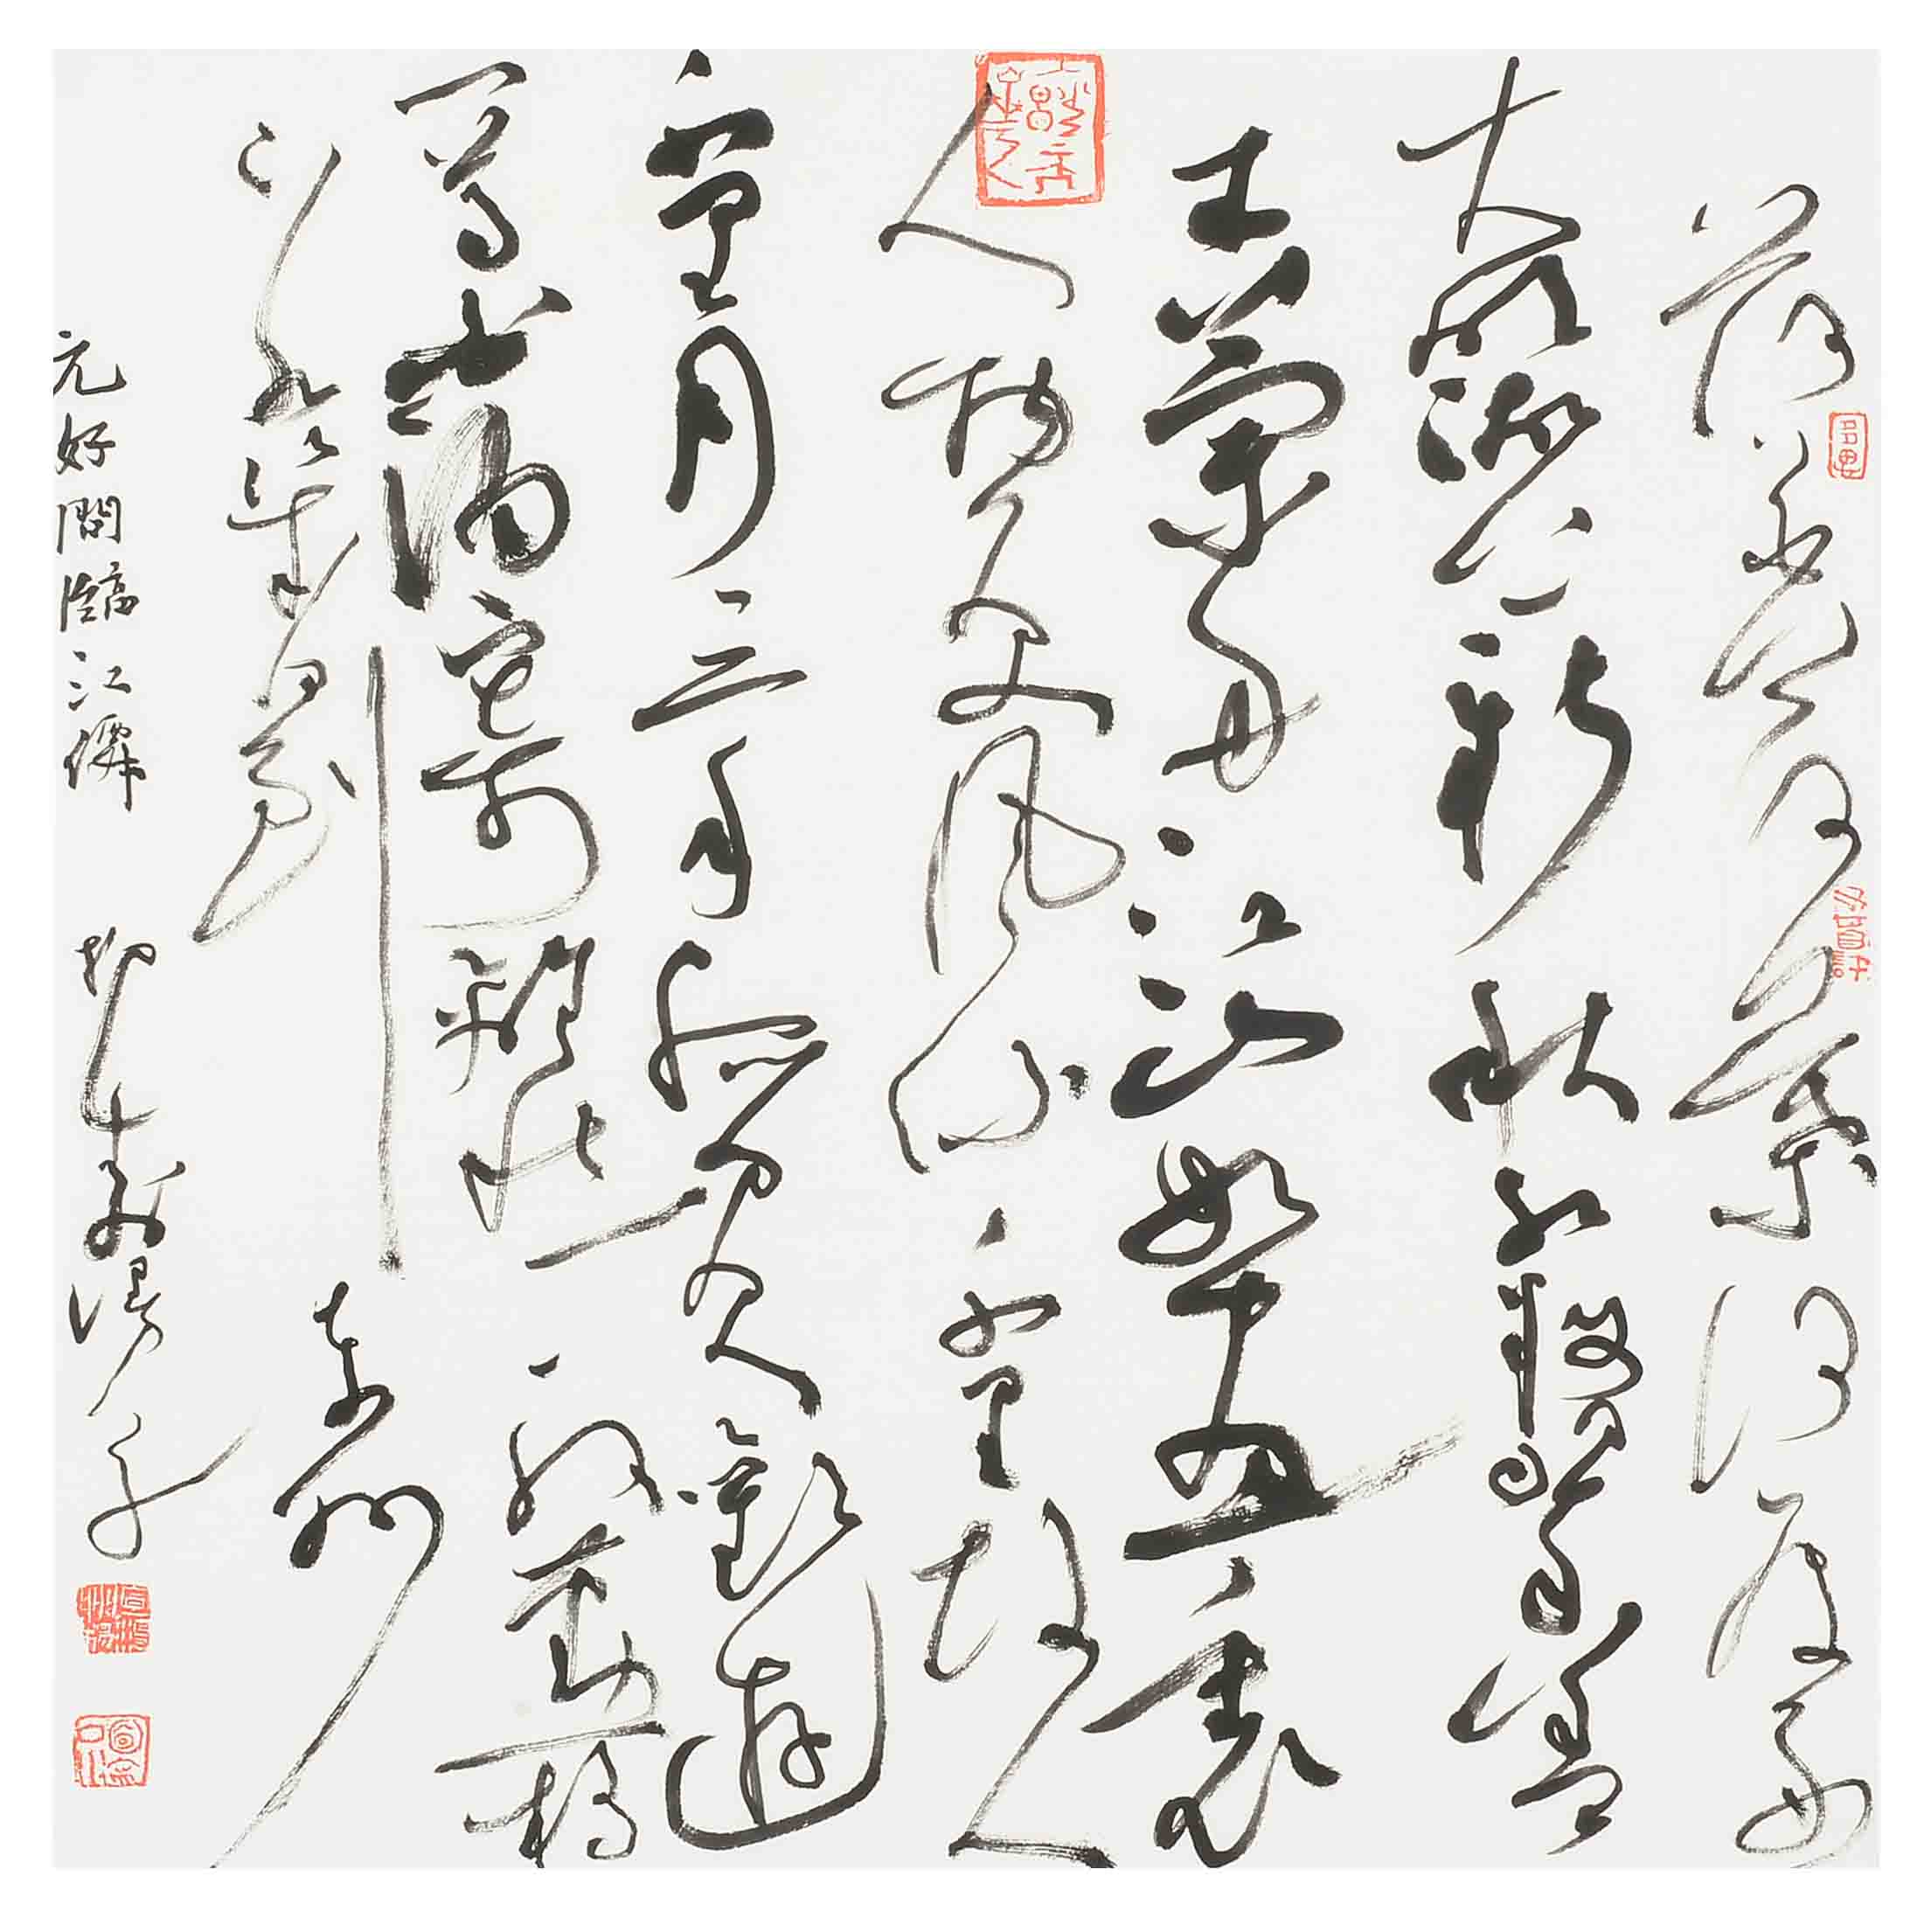 荷花荷葉何處好
大明湖上新秋紅妝翠蓋
木蘭舟江山如畫裏
人物更風流千里故人
千里月三年孤負歡遊
一尊白酒寄離愁殷勤橋
下水幾到東州
元好問臨江僊